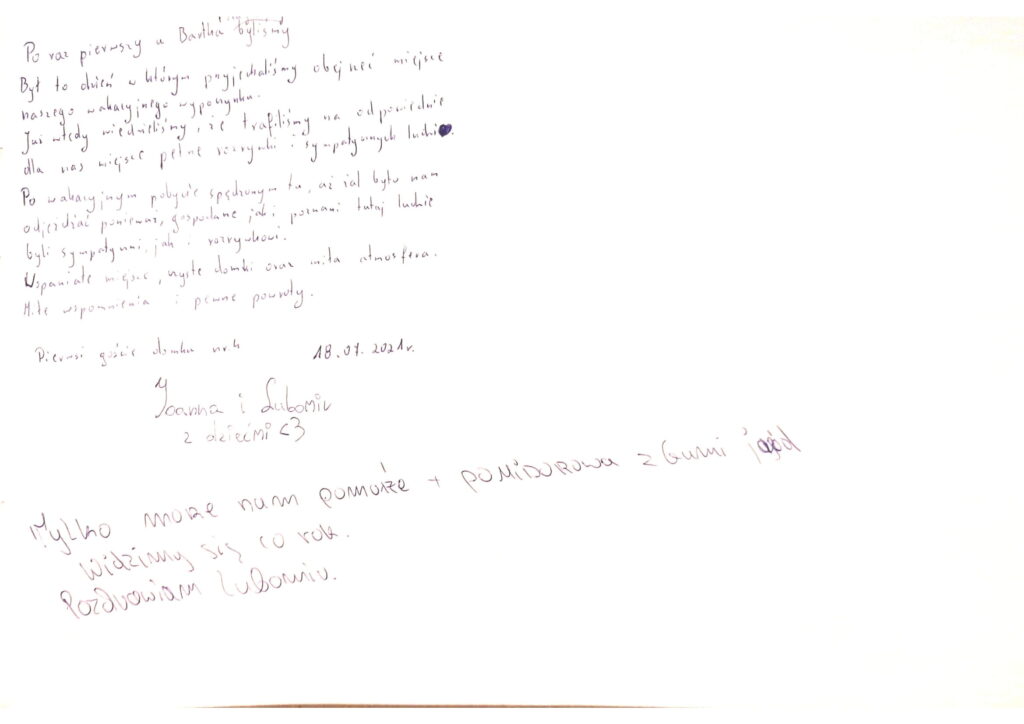 Po raz pierwszy u Bartka byliśmy
Był to dzień w którym przyjechaliśmy obejrzeć miejsce
naszego wakacyjnego wypoczynku.
Już wtedy wiedzieliśmy, że trafiliśmy na odpowiednie
dla nas miejsce pełne rozrywki i sympatycznych ludzi.
Po wakacyjnym pobycie spędzonym tu, aż żal było nam
odjeżdżać ponieważ, gospodarze jak i poznani tutaj ludzie
byli sympatyczni, jak i rozrywkowi.
Wspaniałe miejsce, czyste domki oraz miła atmosfera.
Miłe wspomnienia i pewne powroty.
Pierwsi goście domku nr 4
18.07.2021r.
Joanna i Lubomir
z dziećmi <3
Tylko morze nam pomoże + pomidorowa z Gumi
Widzimy się co rok.
Pozdrawiam Lubomir.